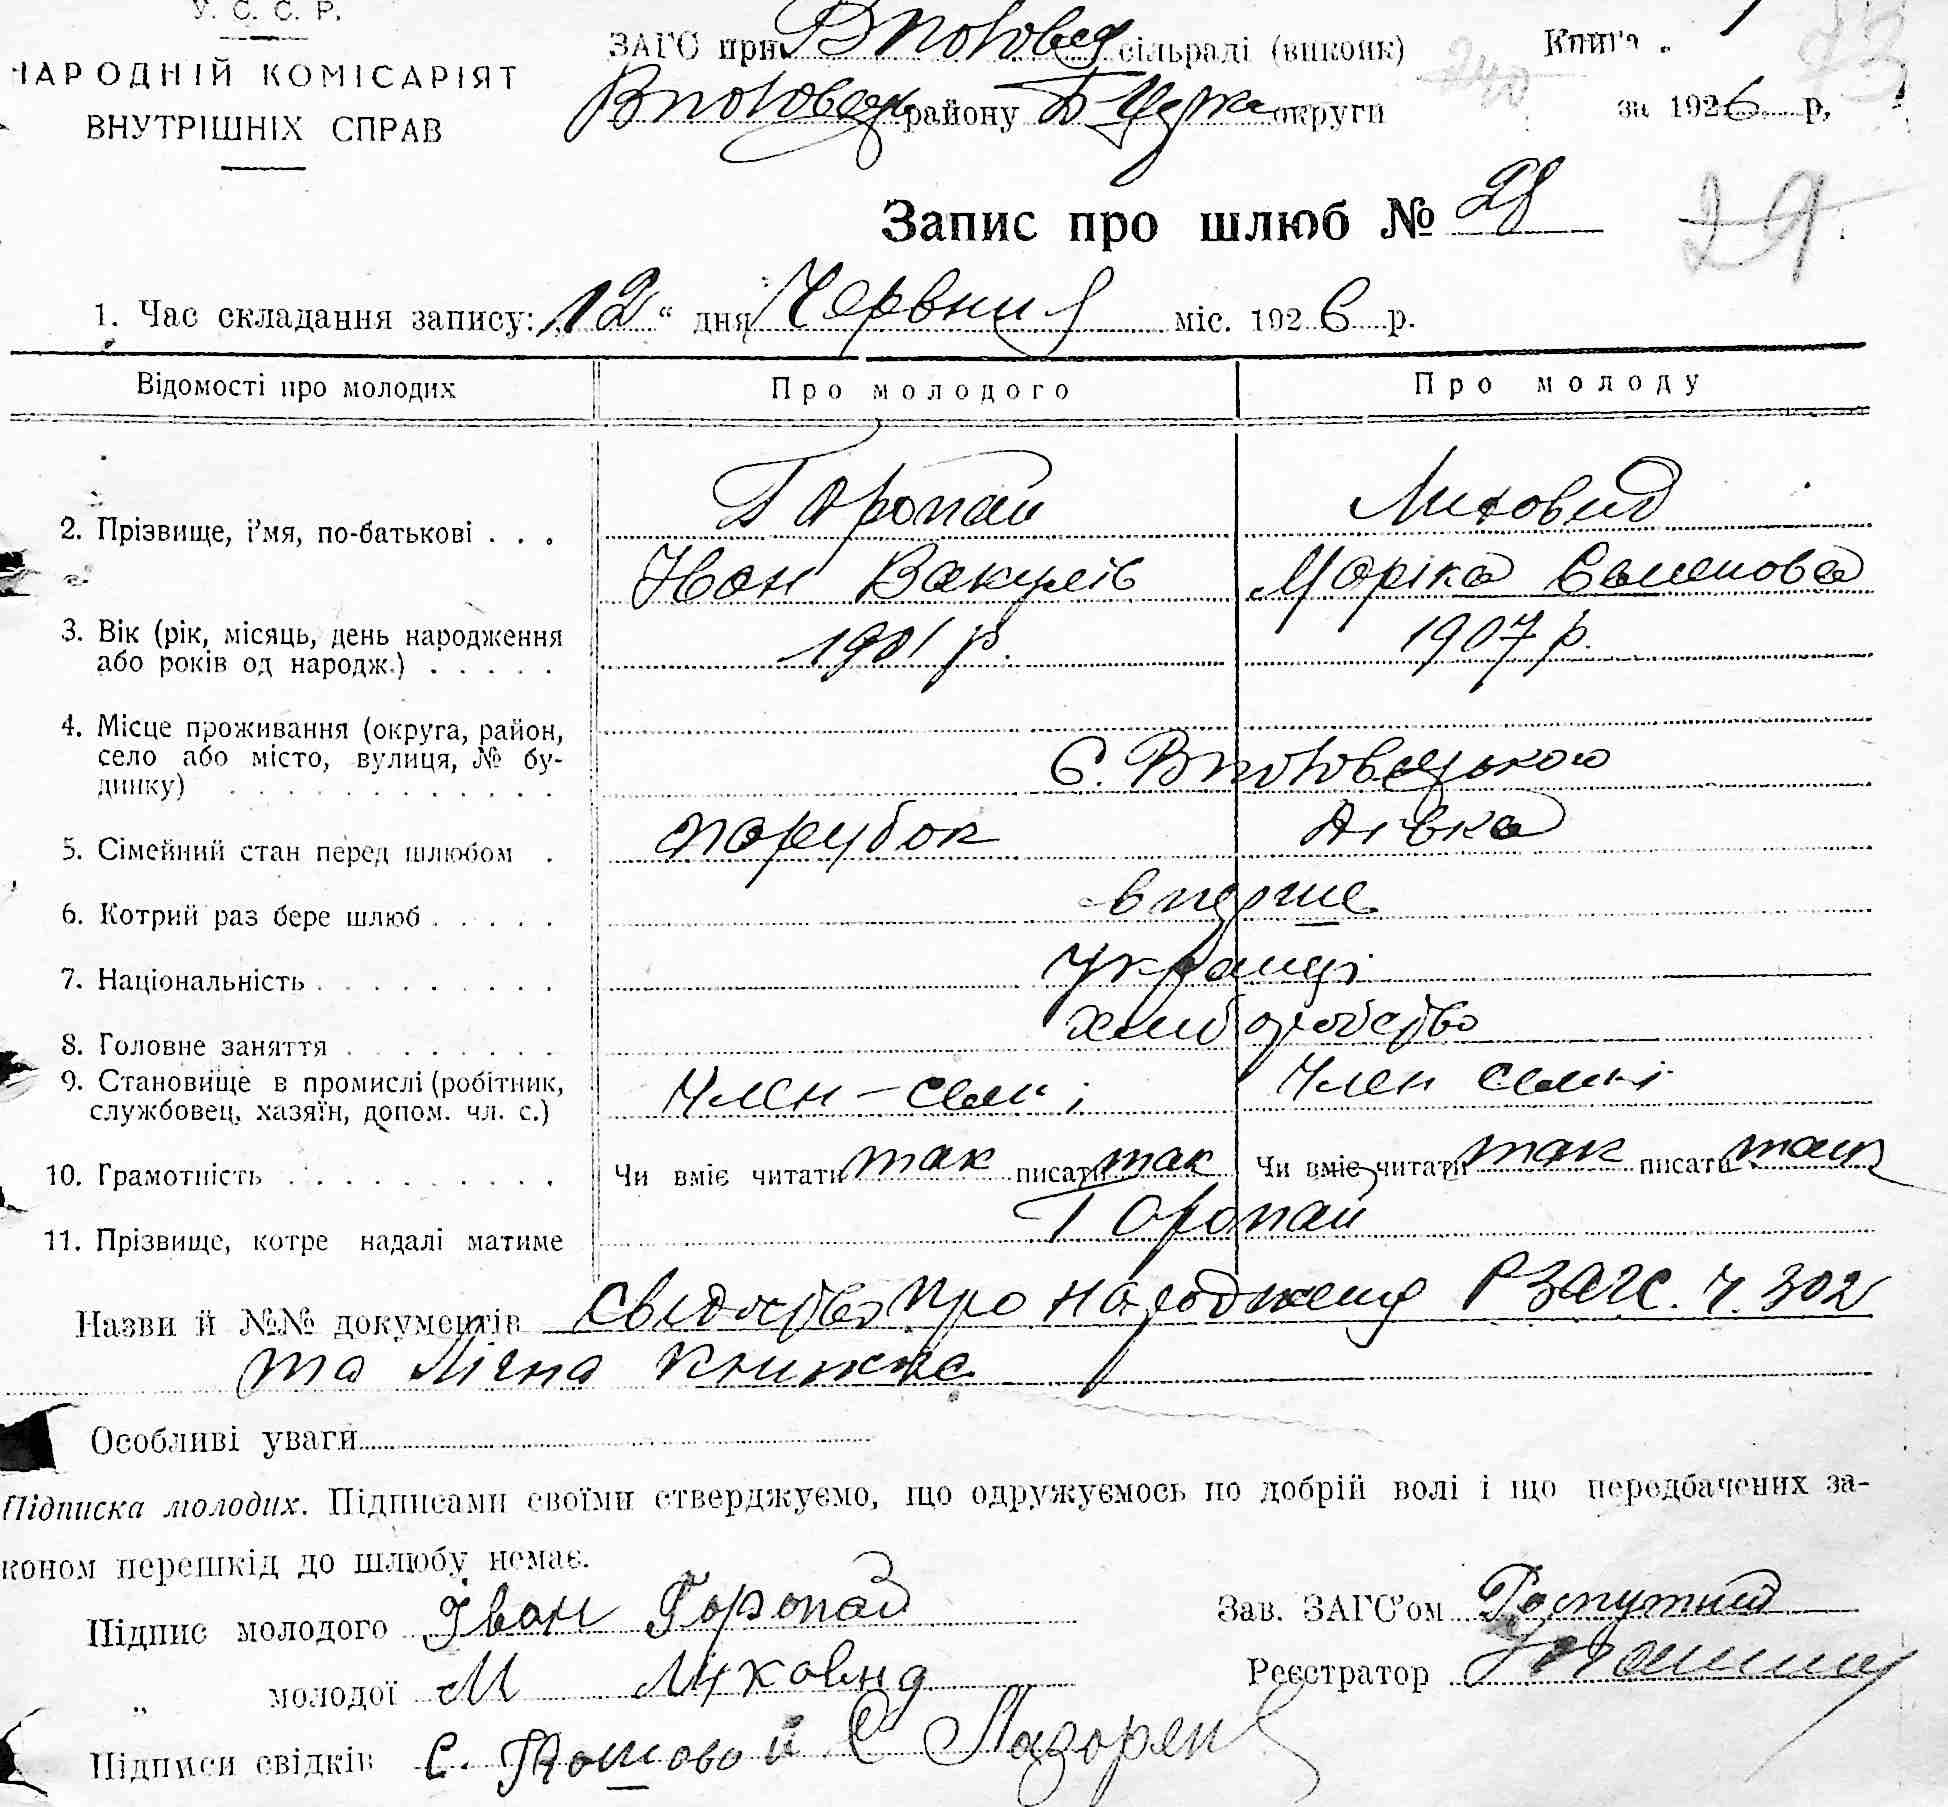 У. С. С. Р.
НАРОДНІЙ КОМІСАРІЯТ
ВНУТРІШНІХ СПРАВ
ЗАГС при сільраді (виконк)
району Б-Церк округи
Книга 1
за 1926 р.
Запис про шлюб № 28
29
1. Час складання запису: „12“ дня Червня міс. 1926 р.
Відомості про молодих Про молодого Про молоду
2. Прізвище, і'мя, по-батькові . . . Горопай Лиховид
Іван Вакулів Маріка Семенова
3. Вік (рік, місяць, день народження 1901 р. 1907 р.
або років од народж.) . . . . .
4. Місце проживання (округа, район,
село або місто, вулиця, № бу-
динку)
5. Сімейний стан перед шлюбом . парубок дівка
6. Котрий раз бере шлюб . . . . . вперше
7. Національність . . . . . . . . . українці
8. Головне заняття . . . . . . . . хліборобство
9. Становище в промислі (робітник, Член-семі Член семі
службовец, хазяїн, допом. чл. с.)
10. Грамотність . . . . . . . . . . Чи вміє читати так писати так Чи вміє читати так писати так
11. Прізвище, котре надалі матиме Горопай
Назви й №№ документів свідоцтво про народження РЗАГС. ч. 302
та Лічна книжка
Особливі уваги
Підписка молодих. Підписами своїми стверджуємо, що одружуємось по добрій волі і що передбачених за-
коном перешкід до шлюбу немає.
Підпис молодого Іван Горопай
Зав. ЗАГС'ом Распутній
„ молодої М Лиховид
Реєстратор
Підписи свідків С. С Лазорен